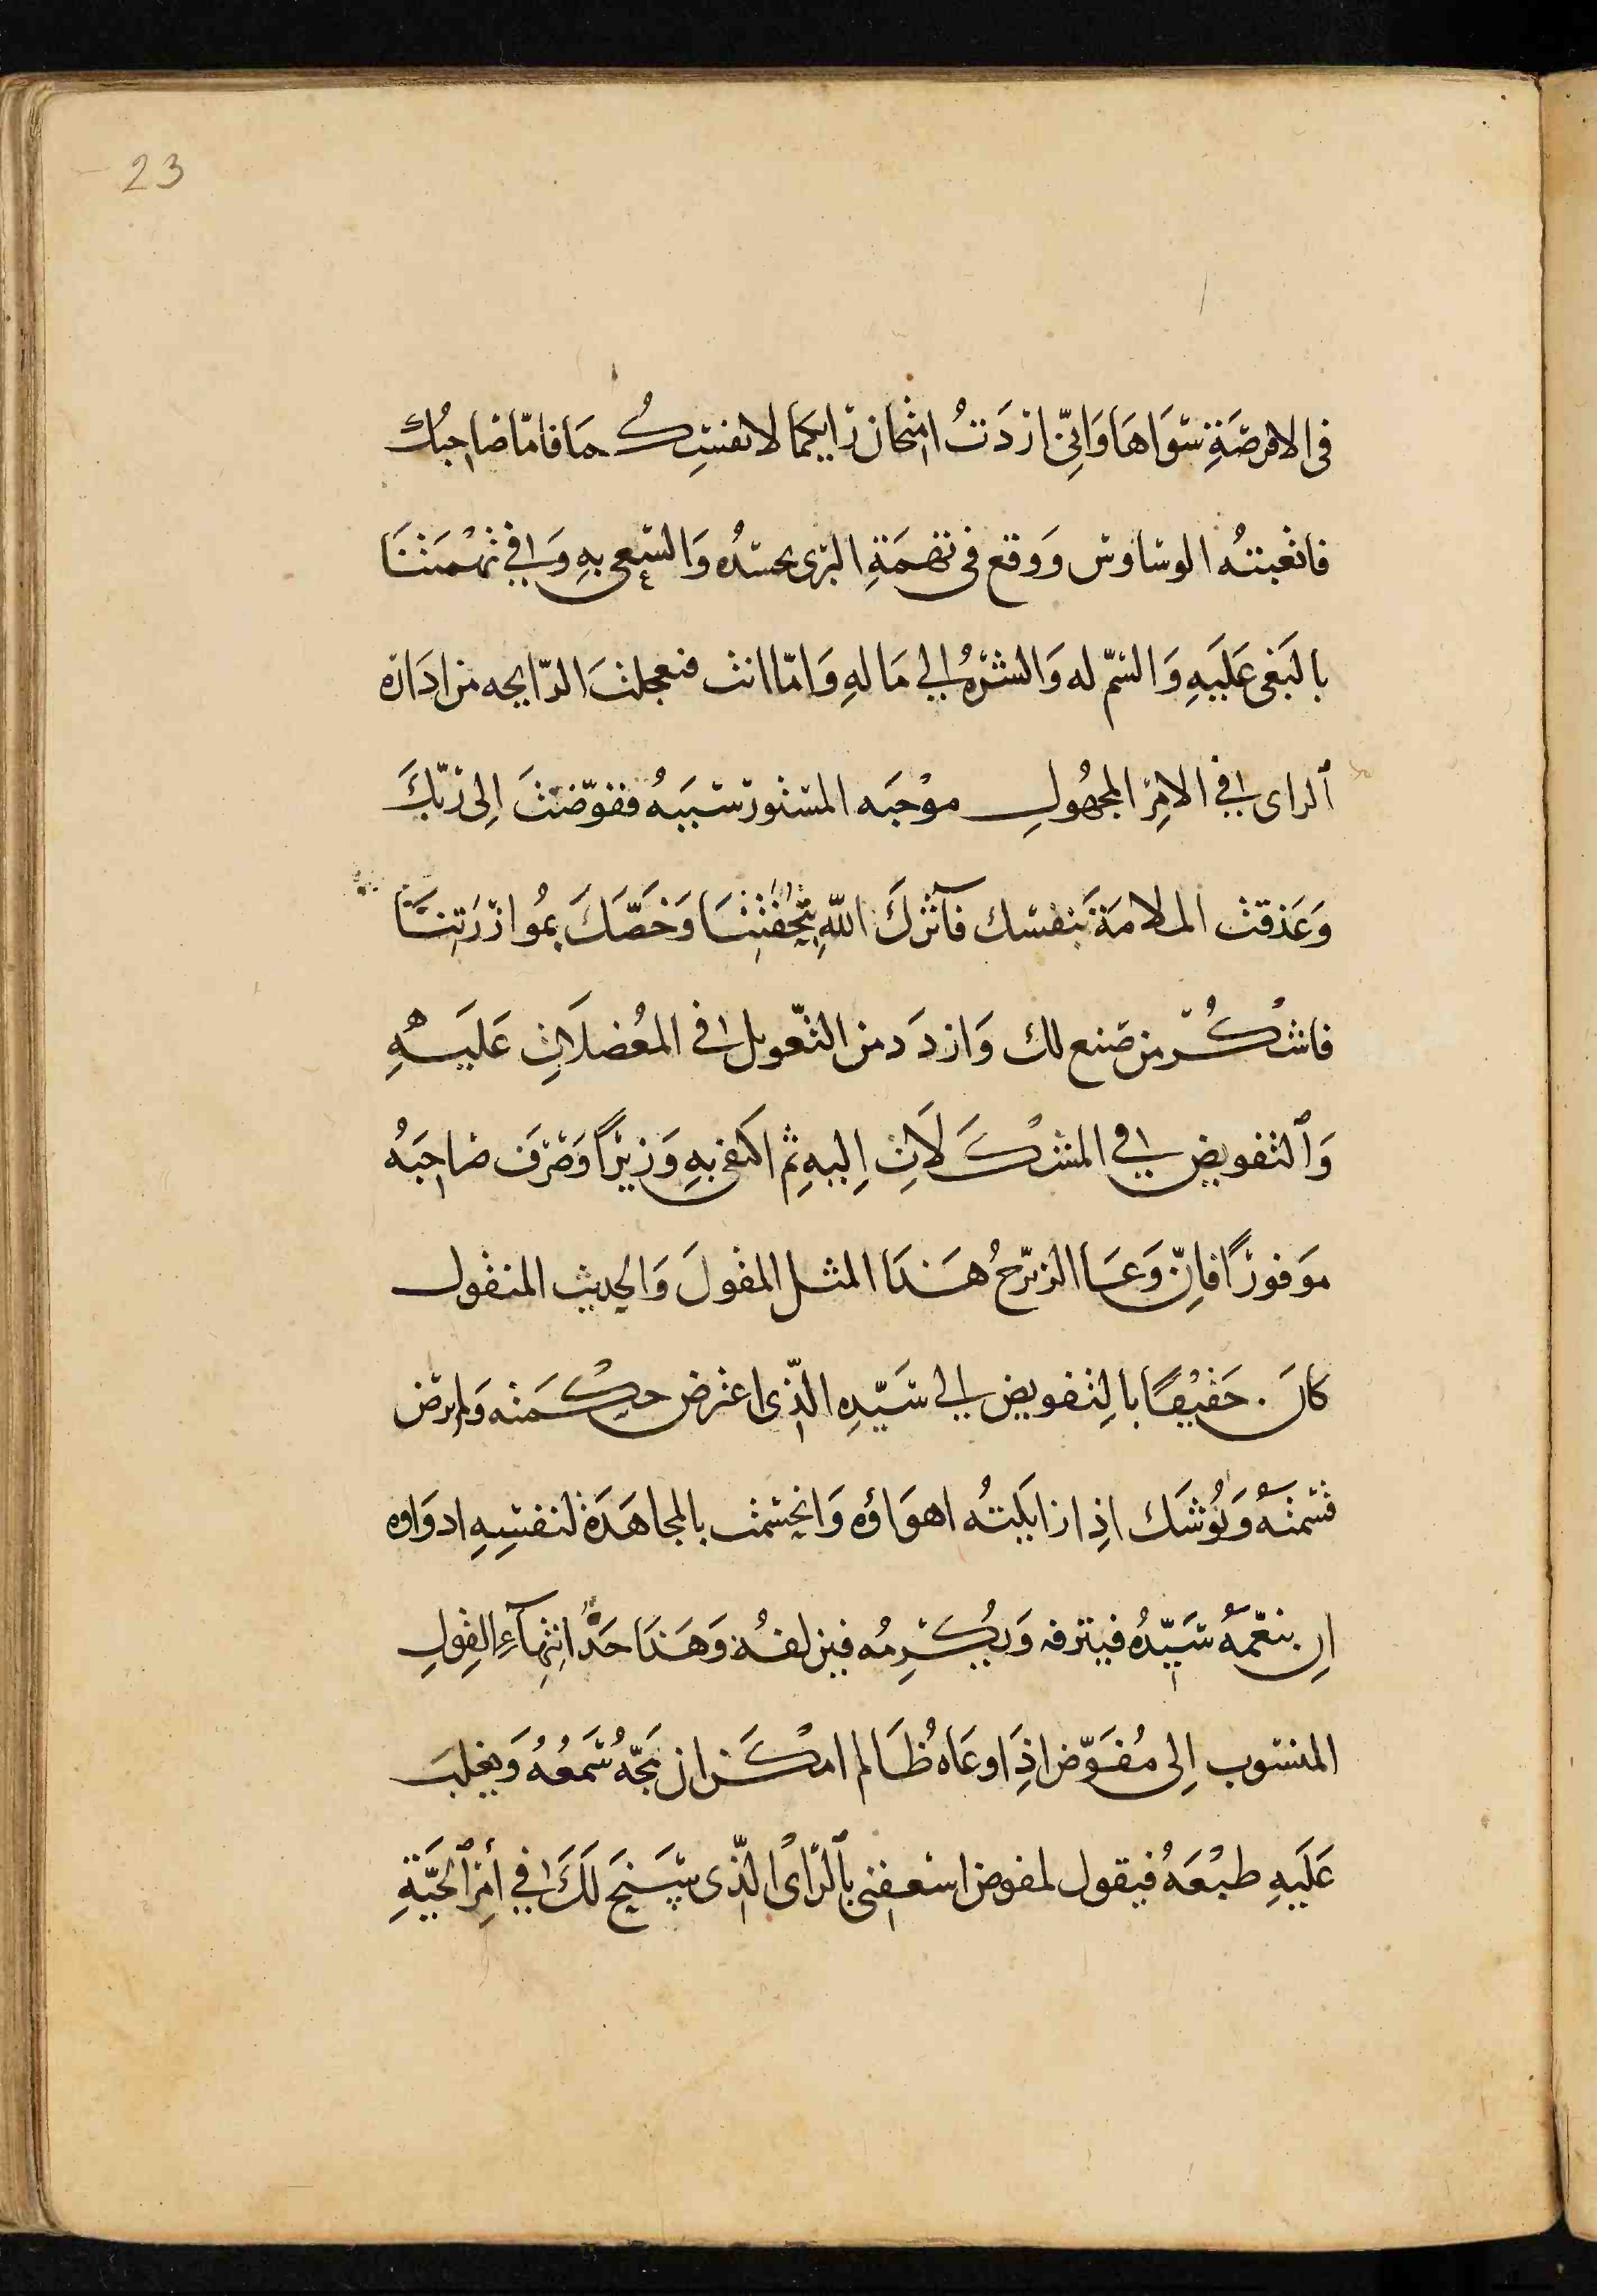 23
فى الافرصَةِ سَوَاهَا وَانّى ازدَدتُ امتحان رايكما لانفسِكُما فامّا صاحبُك
فاتعبتهُ الوساوس وَوقع فى تهمَةِ البرى بحسَدُه وَالسّعى بهِ وَفى تهْمَتنَا
بالبَغى عَليَهِ وَالسّم له وَالشرَهُ الى مَالهِ وَامّا انت فتعجلتَ الرّايحه من ادَارَه
ٱلراى فى الامرِ المجهُولِ موْجبَه المستور سَببَهُ ففوّضتَ اِلى رَبّكَ
وَعَذقت الملامَةَ بنفسك فآثرَكَ اللهِ بتحُفتِنَا وَخصّكَ بمُوازرَتِنَا
فاشكُر من صَنع لك وَازدَد من التّعويل فى المعُضلاَتِ عَليَهِ
وَٱلتفويض فى المشكَلاَتِ اِليهِ ثم اكتفى بهِ وَزيرًا وَصَرَف صَاحِبَهُ
مَوفورًا فانّ وَعَا الزبّرحُ هَذا المثل المقولَ وَالحديث المنقول
كانَ . حَقيْقًا بالِتفويض الى سَيّدِهِ الذّى اعترض حِكْمَته وَلم يرض
قسْمتهُ وَيُوشَك اذِا زايَلتهُ اهوَاؤه وَانحسَمت بالمجاهَدَة لنفسِهِ ادوَاوه
انِ ينعّمهُ سَيّدُه فيترفه وَيُكرِمُه فيزلفهُ وَهَذا حَدُّ انتِهآءِ القوِلِ
المنسوب اِلى مُفَوّض اذِا وعَاه ظَالم امْكَن ان يَمجّهُ سَمعُهُ وَيغلبَ
عَليَهِ طبْعَهُ فيقول لمفوض اسْعفنى بٱلرّاىْ الذّى سَنَحَ لَكَ فى أمرِ ٱلحيَّةِ